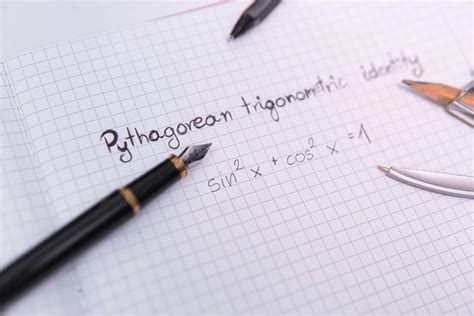 Pythagorean trigonometric identity
sin² x + cos² x = 1